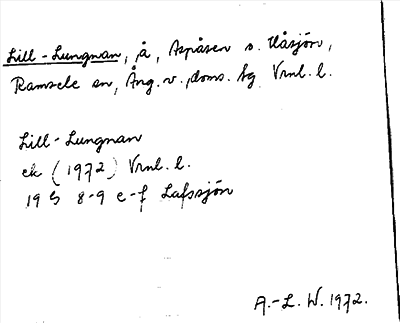 Lill-Lungnan, å, Aspåsen s. Flåsjön,
Ramsele sn, Ång. v., doms. bg Vrnl. l.
Lill-Lungnan
ek (1972) Vrnl. l.
19 G 8-9 e-f Lafssjön
A.-L. W. 1972.